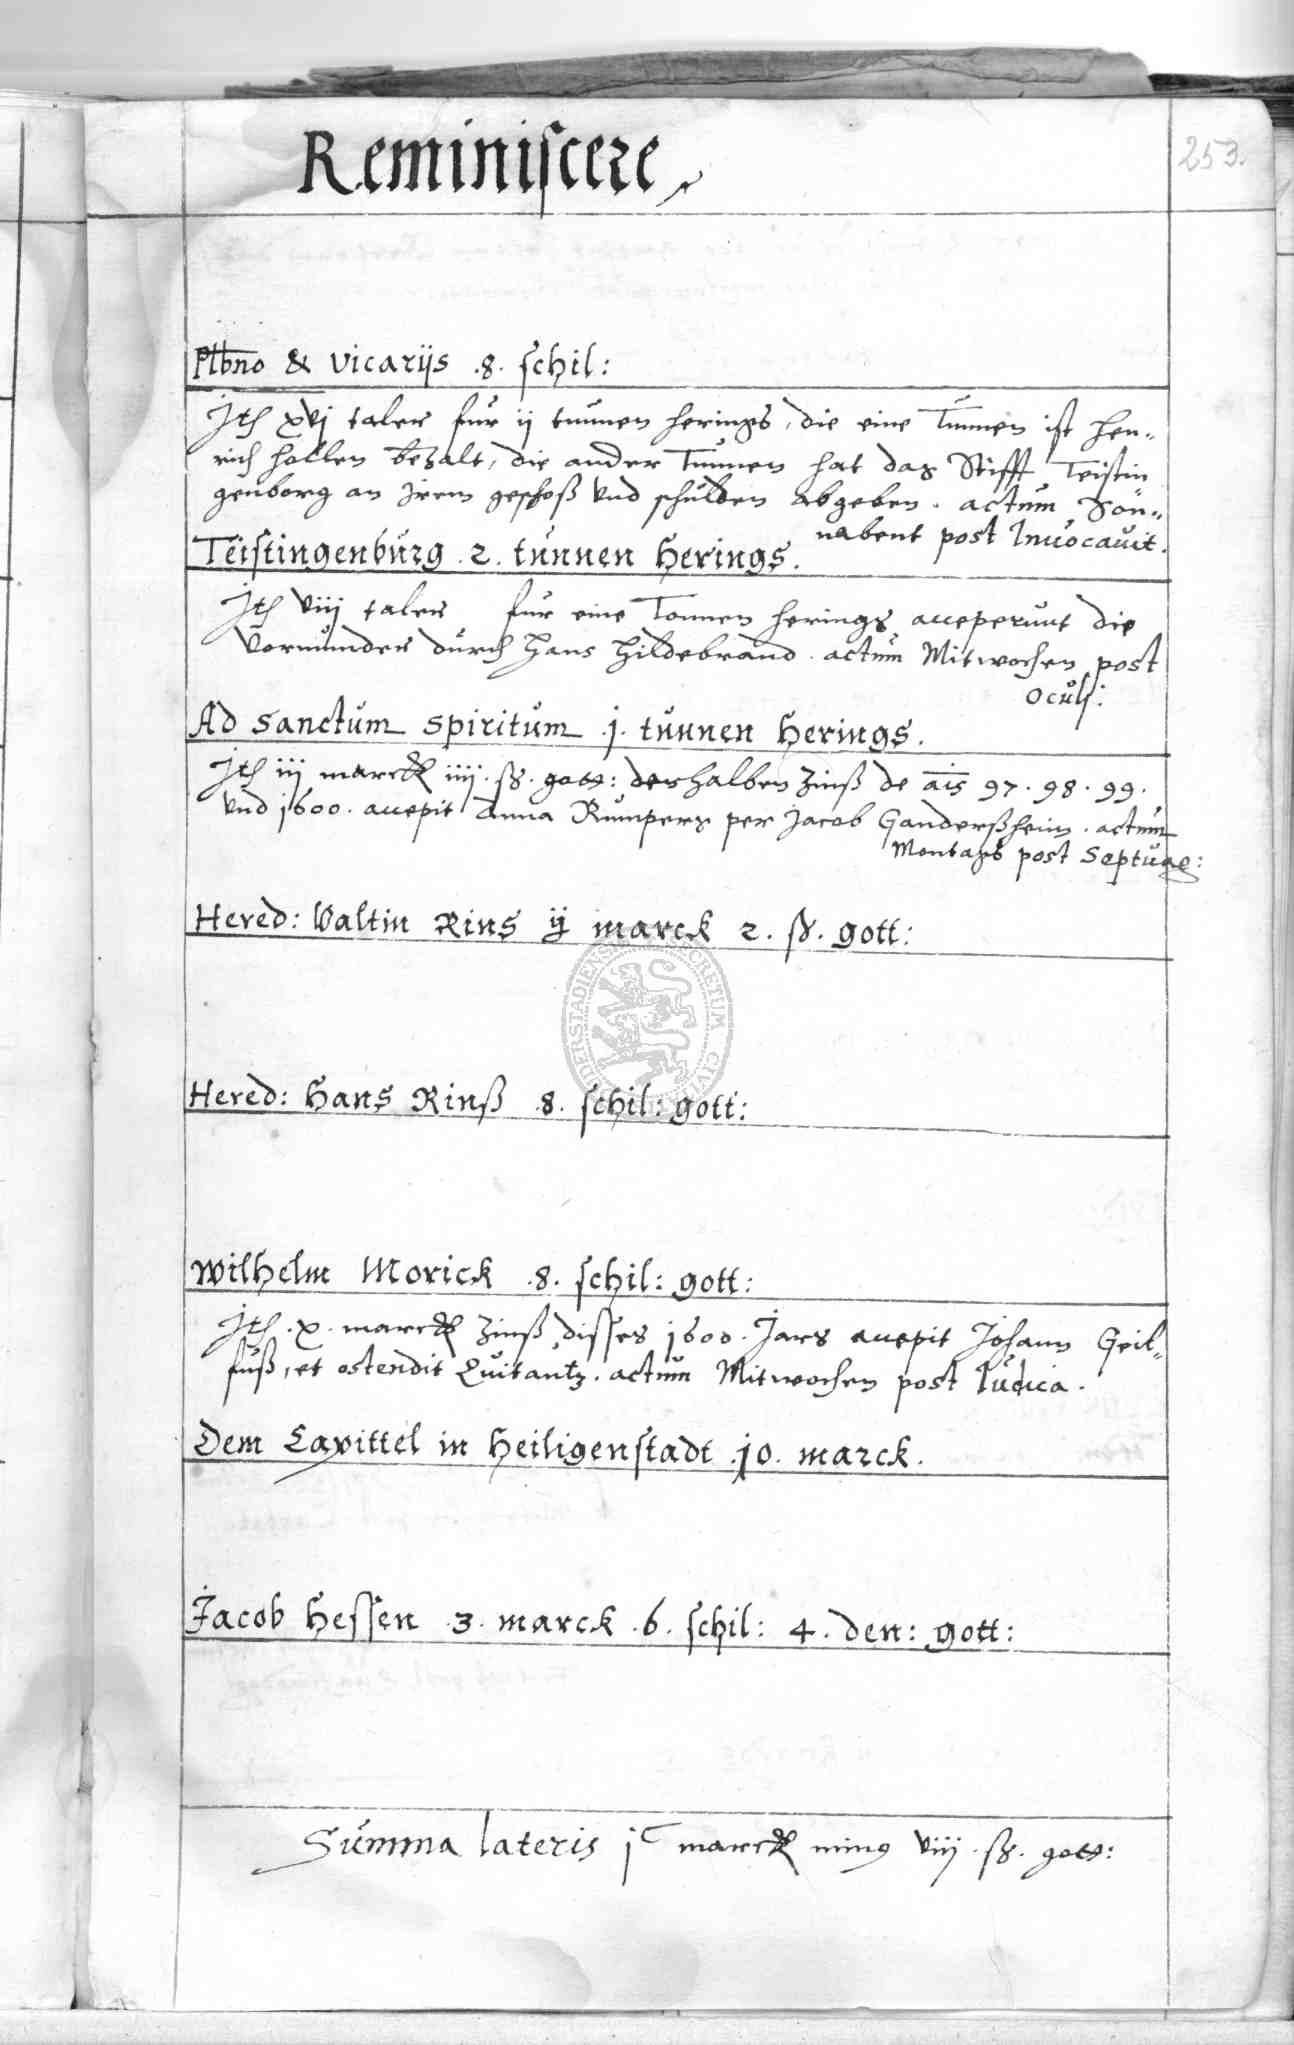 Reminiscere
253.
Plbno & vicarijs .8. schil:
Jth xvj taler fur ij tunnen herings, die eine Tunnen ist Hen-
rich Hollen bezalt, die ander Tunnen hat das Stifft Teistin
genborg an jrem geschoß vnd schulden abgeben. actum Son-
nabent post Inuocauit.
Teistingenburg .2. tunnen Herings.
Jth viij taler fur eine Tonnen herings acceperunt die
Vormunder durch Hans Hildebrand. actum Mitwochen post
Oculj:
Ad Sanctum Spiritum .j. tunnen Herings.
Jth iij marck iiij. ß. gott: deshalben Zinß de ais 97. 98. 99.
vnd 1600. accepit Anna Rumpers per Jacob Ganderßheim. actum
Montags post Septuag:
Hered: Valtin Rins ij marck 2. ß. gott:
Hered: Hans Rinß .8. schil: gott:
Wilhelm Morick .8. schil: gott:
Jth .x. marck Zinß disses 1600. Jars accepit Johann Geil-
fuß, et ostendit Quitantz. actum Mitwochen post Iudica.
Dem Capittel in Heiligenstadt .10. marck.
Jacob Hessen .3. marck .6. schil: 4. den: gott:
Summa lateris jc marck ming viij .ß. gott: